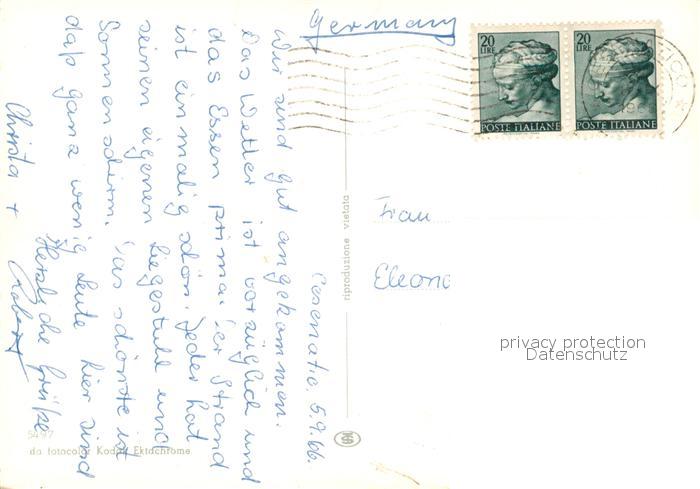 Germany
20
LIRE
POSTE ITALIANE
20
LIRE
POSTE ITALIANE
Cesenatico, 5.9.66.
Wir sind gut angekommen.
Das Wetter ist vorzüglich und
das Essen prima. Der Strand
ist einmalig schön. Jeder hat
seinen eigenen Liegestuhl und
Sonnenschirm. Das schönste ist
daß ganz wenig Leute hier sind
Herzliche Grüße
Christa +
Robert
riproduzione vietata
Frau
Eleono
privacy protection
Datenschutz
5497
da fotocolor Kodak Ektachrome